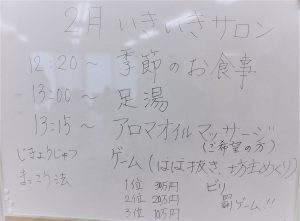 2月 いきいきサロン
12:20～ 季節のお食事
13:00～ 足湯
13:15～ アロマオイルマッサージ
(ご希望の方)
じきょうじゅつ ゲーム(ばば抜き、坊主めくり)
まっこう法 1位 30万円 ビリ
2位 20万円 罰ゲーム!!
3位 10万円